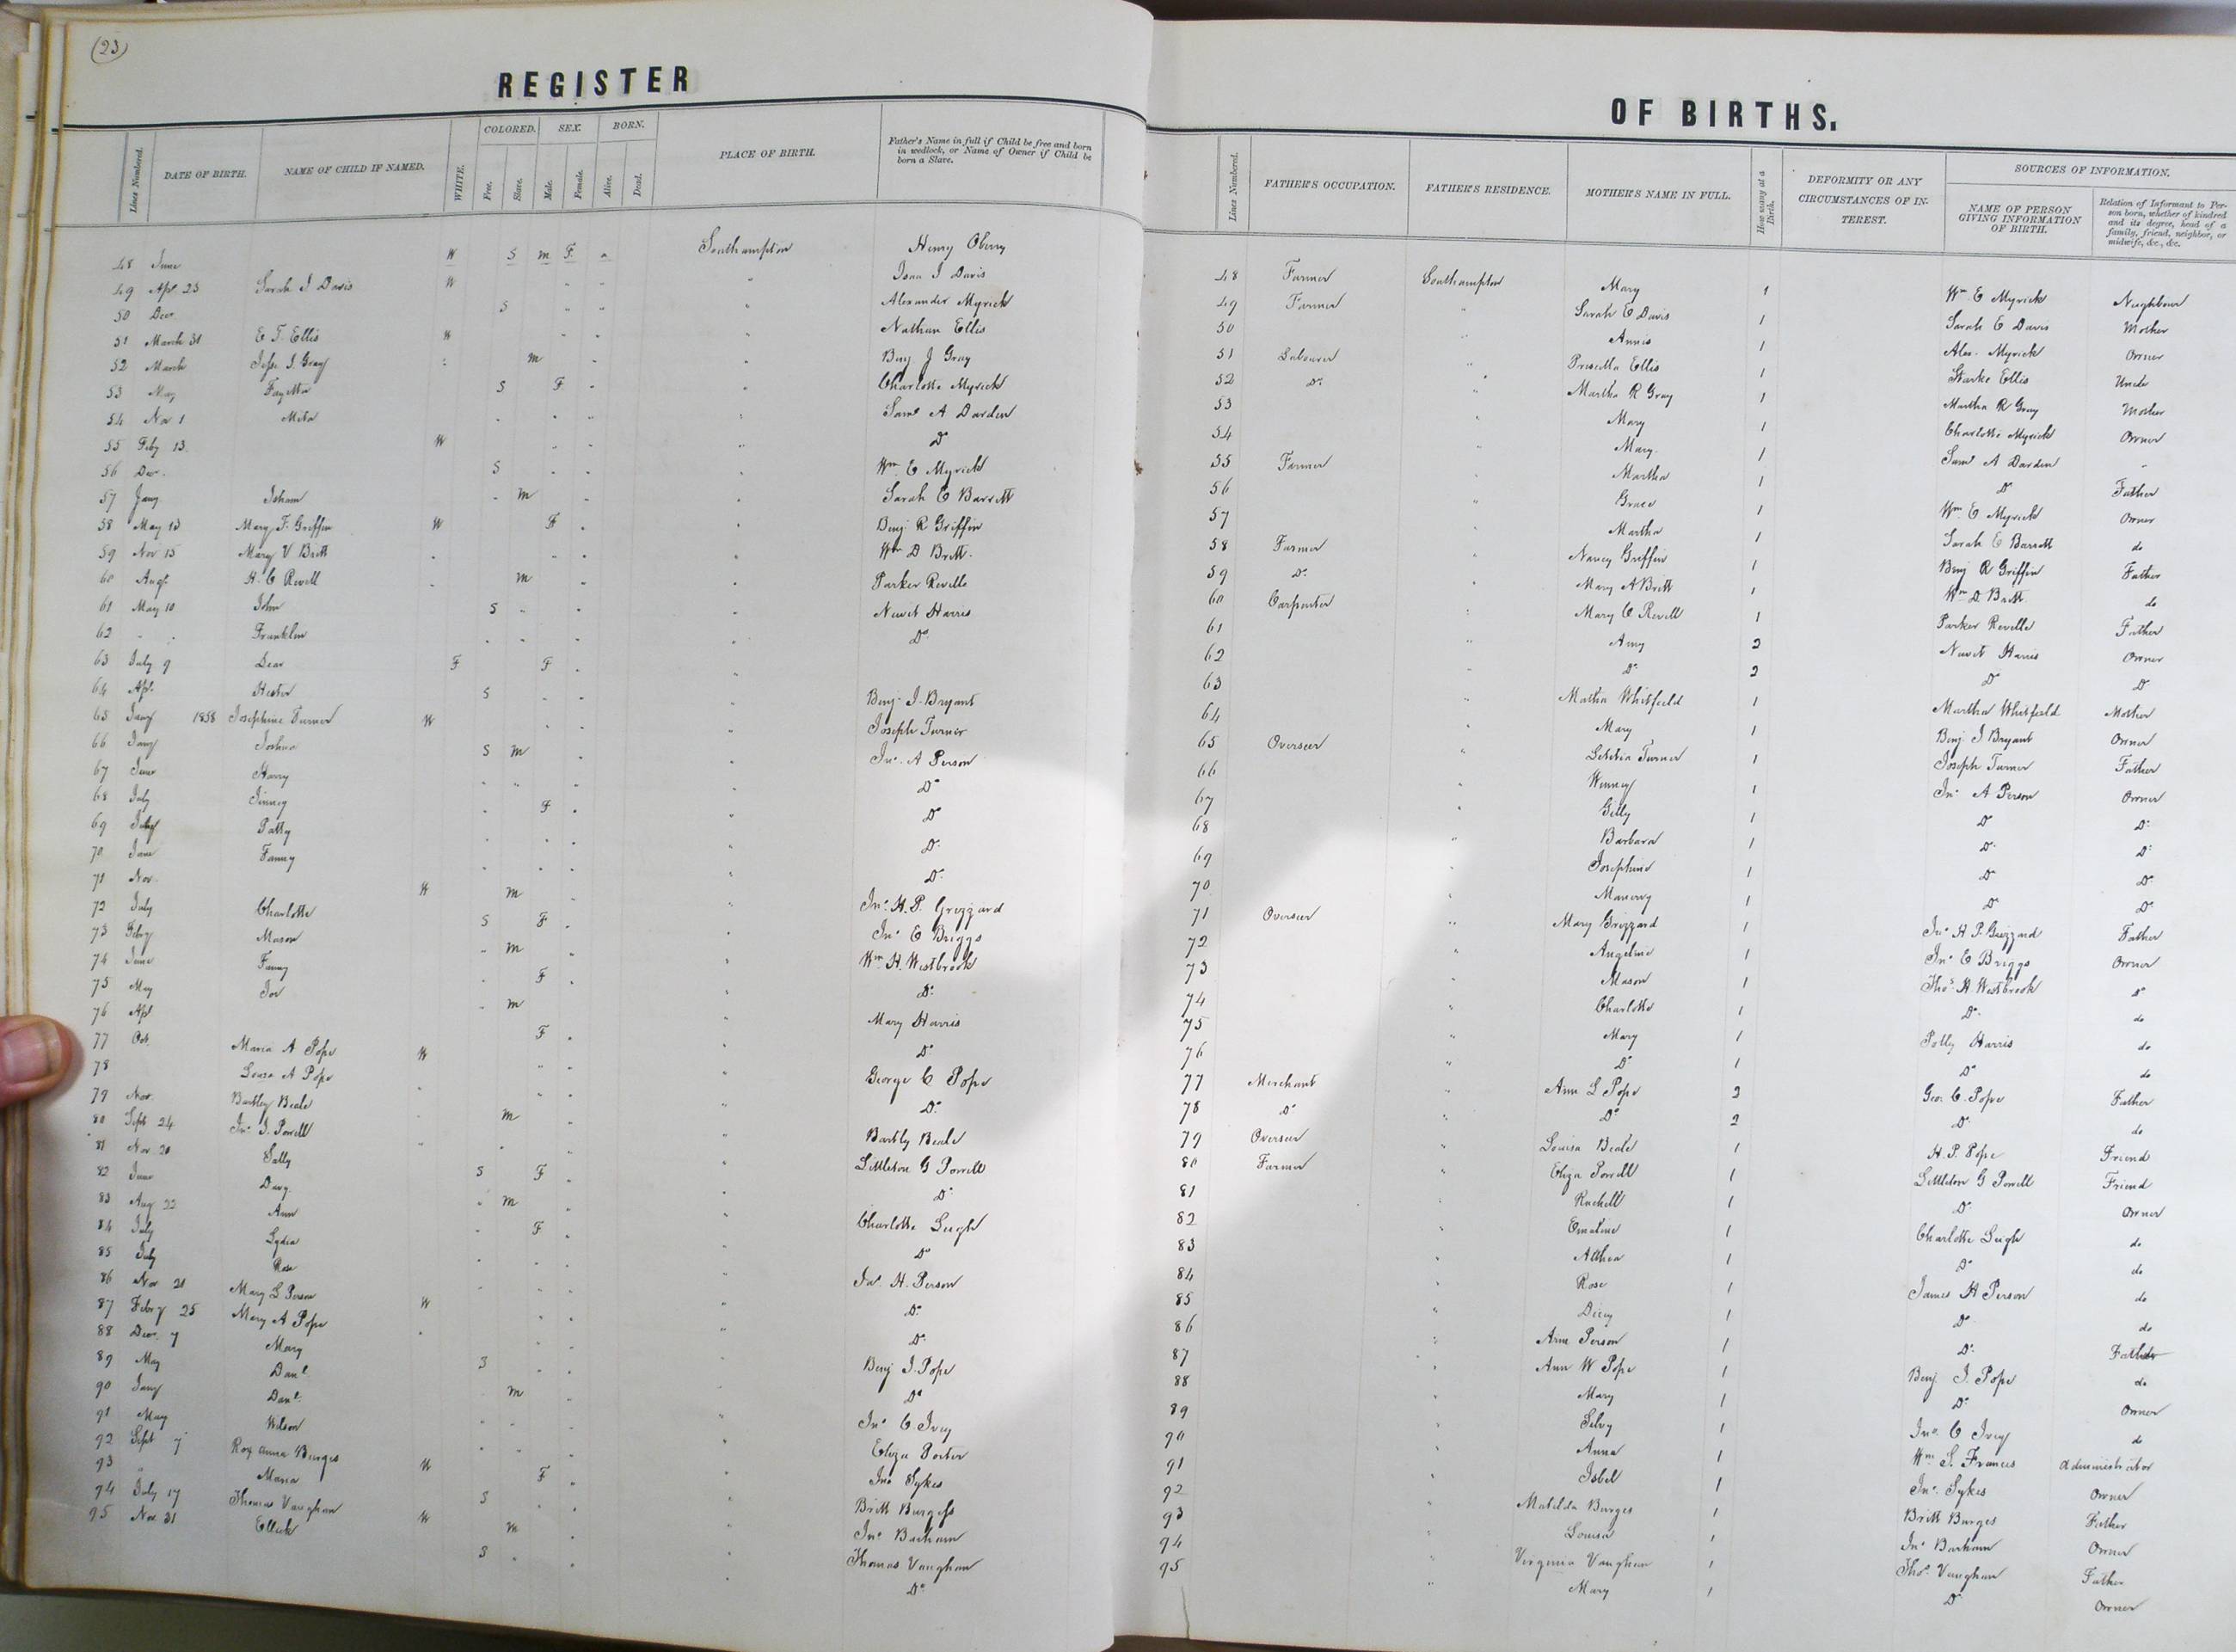 (23)
REGISTER
Lines Numbered. DATE OF BIRTH. NAME OF CHILD IF NAMED. WHITE. COLORED. Free. Slave. SEX. Male. Female. BORN. Alive. Dead. PLACE OF BIRTH. Father's Name in full if Child be free and born in wedlock, or Name of Owner if Child be born a Slave.
48 June W S m F a Southampton Henry Obery
49 Apl 23 Sarah J Davis W " " " D Davis
50 Decr S " " " Alexander Myrick
51 March 31 E. T. Ellis W " " " Nathan Ellis
52 March Jesse J. Gray : m " " Benj J Gray
53 May S F " " Charlotte Myrick
54 Nov 1 " " " " Saml A Darden
55 Feby 13 W " " " Do
56 Decr S " " " Wm E Myrick
57 Jany Isham " m " " Sarah E Barrett
58 May 13 Mary F. Griffin W F " " Benj R Griffin
59 Nov 15 Mary V Britt " " " " Wm D Britt
60 Augt H. C Revell " m " " Parker Revelle
61 May 10 John S " " " Newit Harris
62 " " Franklin " " " " Do
63 July 9 Dear F F " "
64 Apl Hester S " " " Benj J. Bryant
65 Jany 1858 Josephine Turner W " " " Joseph Turner
66 Jany Joshua S m " " Jno A Person
67 June Harry " " " " Do
68 July Jinney " F " " Do
69 July Patty " " " " Do
70 June Fanny " " " " Do
71 Nov. W m " " Jno H. P. Grizzard
72 July Charlotte S F " " Jno E Briggs
73 Feby Mason " m " " Wm H. Westbrook
74 June Fanny F " " Do
75 May Joe " m " Mary Harris
76 Apl F " " Do
77 Oct. Maria A Pope W " " " George C Pope
78 Louisa A Pope " " " " Do
79 Nov. Bartley Beale " m " " Bartly Beale
80 Sept 24 Jno J. Powell " " " " Littleton G Powell
81 Nov 20 Sally S F " " Do
82 June Davy " m " " Charlotte Leigh
83 Aug 22 Ann " F " " Do
84 July Lydia " " " " Jas H. Person
85 July Rose " " " " Do
86 Nov 21 Mary L Person W " " " Do
87 Febry 25 Mary A Pope " " " " Benj J. Pope
88 Decr 7 Mary S " " " Do
89 May Danl m " " Jno C Ivey
90 Jany Danl " " " " Eliza Porter
91 May Wilson " " " " Jno Sykes
92 Sept 7 Roxanna Burges W F " " Britt Burgess
93 " Maria S " " " Jno Barham
94 July 17 Thomas Vaughan W m " " Thomas Vaughan
95 Nov 31 Ellick S " " " Do
OF BIRTHS.
Lines Numbered. FATHER'S OCCUPATION. FATHER'S RESIDENCE. MOTHER'S NAME IN FULL. How many at a Birth. DEFORMITY OR ANY CIRCUMSTANCES OF INTEREST. SOURCES OF INFORMATION. NAME OF PERSON GIVING INFORMATION OF BIRTH. Relation of Informant to Person born, whether of kindred and its degree, head of a family, friend, neighbor, or midwife, &c., &c.
48 Farmer Southampton Mary 1 Wm E Myrick Neighbour
49 Farmer " Sarah E Davis 1 Sarah E Davis Mother
50 " Annis 1 Alex. Myrick Owner
51 Labourer " Priscilla Ellis 1 Starke Ellis Uncle
52 Do " Martha R Gray 1 Martha R Gray Mother
53 " Mary 1 Charlotte Myrick Owner
54 " Mary 1 Saml A Darden "
55 Farmer " Martha 1 Do Father
56 " Grace 1 Wm E Myrick Owner
57 " Martha 1 Sarah E Barrett do
58 Farmer " Nancy Griffin 1 Benj R Griffin Father
59 Do " Mary A Britt 1 Wm D. Britt do
60 Carpenter " Mary C. Revell 1 Parker Revelle Father
61 " Amy 2 Newit Harris Owner
62 " Do 2 Do Do
63 " Martha Whitfield 1 Martha Whitfield Mother
64 " Mary 1 Benj J Bryant Owner
65 Overseer " Letitia Turner 1 Joseph Turner Father
66 " Winney 1 Jno A Person Owner
67 " Gilly 1 Do Do
68 " Barbara 1 Do Do
69 " Josephine 1 Do Do
70 " 1 Do Do
71 Overseer " Mary Grizzard 1 Jno H P. Grizzard Father
72 " Angeline 1 Jno E Briggs Owner
73 " Mason 1 Thos H Westbrook Do
74 " Charlotte 1 Do do
75 " Mary 1 Polly Harris do
76 " Do 1 Do do
77 Merchant " Ann L Pope 2 Geo. C. Pope Father
78 Do " Do 2 Do do
79 Overseer " Louisa Beale 1 H. P. Pope Friend
80 Farmer " Eliza Powell 1 Littleton G Powell Friend
81 " Rachell 1 Do Owner
82 " Emeline 1 Charlotte Leigh do
83 " Althea 1 Do do
84 " Rose 1 James H Person do
85 " Dicey 1 Do do
86 " Ann Person 1 Do Father
87 " Ann W Pope 1 Benj. J. Pope do
88 " Mary 1 Do Owner
89 " Silvy 1 Jno. C Ivey do
90 " Anna 1 Wm S. Francis Administrator
91 " Isbel 1 Jno. Sykes Owner
92 " Matilda Burges 1 Britt Burges Father
93 " Louisa 1 Jno Barham Owner
94 " Virginia Vaughan 1 Thos. Vaughan Father
95 " Mary 1 Do Owner